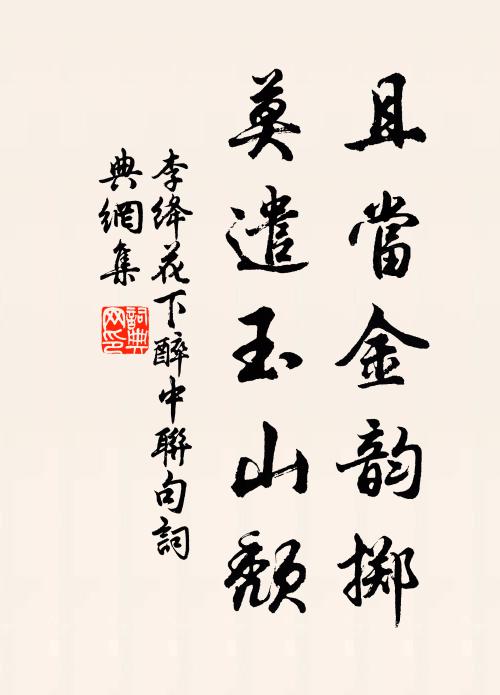 且當金韵擲
莫遣玉山頹
李絳花下醉中聯句詞
典網集
詞典网印